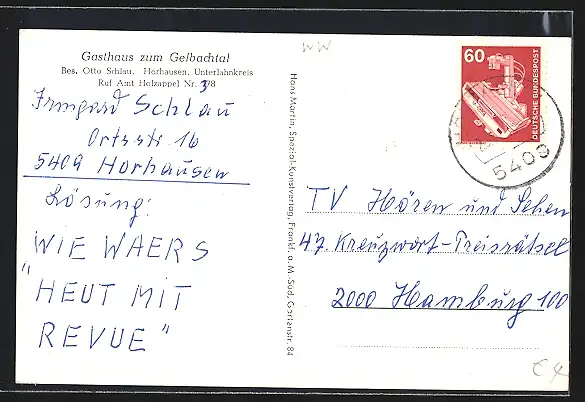 WW
Gasthaus zum Gelbachtal
Bes. Otto Schlau, Horhausen, Unterlahnkreis
Ruf Amt Holzappel Nr. 378
Irmgard Schlau
Ortsstr 16
5409 Horhausen
Lösung:
WIE WAERS
"HEUT MIT
REVUE"
Hans Martin, Spezial-Kunstverlag, Frankf. a. M.-Süd, Gartenstr. 84
60
DEUTSCHE BUNDESPOST
5409
TV Hören und Sehen
47. Kreuzwort-Preisrätsel
2000 Hamburg 100